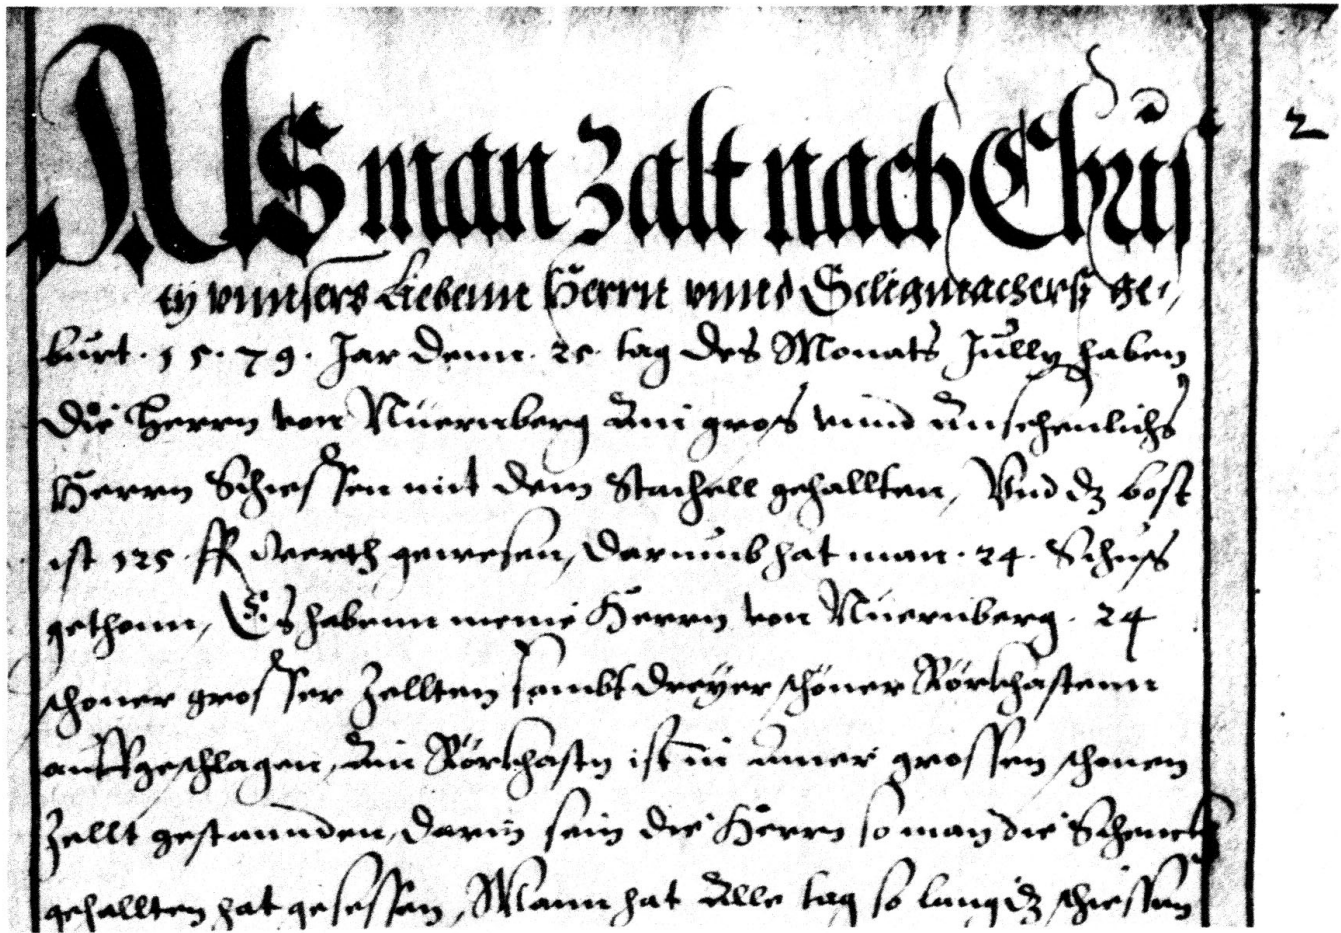 Als man zalt nach Chris
2
ty vnnsers Liebenn Herrn vnnd Seligmachers ge,
burt . 15 . 79 . Jar denn . 25 . tag des Monats Jully haben
Die Herrn von Nüernberg Ain gros vnnd Ansehenlichs
Herrn Schiessen mit dem Stachell gehallten, Vnd dz bost
ist 125 . fl werth gewesen, darumb hat man . 24 . Schuss
gethonn, Es habenn meine Herrn von Nüernberg . 24
schoner grosser Zellten sambt dreyer schöner Rörkhastenn
auffgeschlagen, Ain Rörkhastn ist in Ainer grossen schonen
Zellt gestannden, darin sein die Herrn so man die Schenckh
gehallten hat gesessen, Mann hat Alle tag so lang dz schiessen